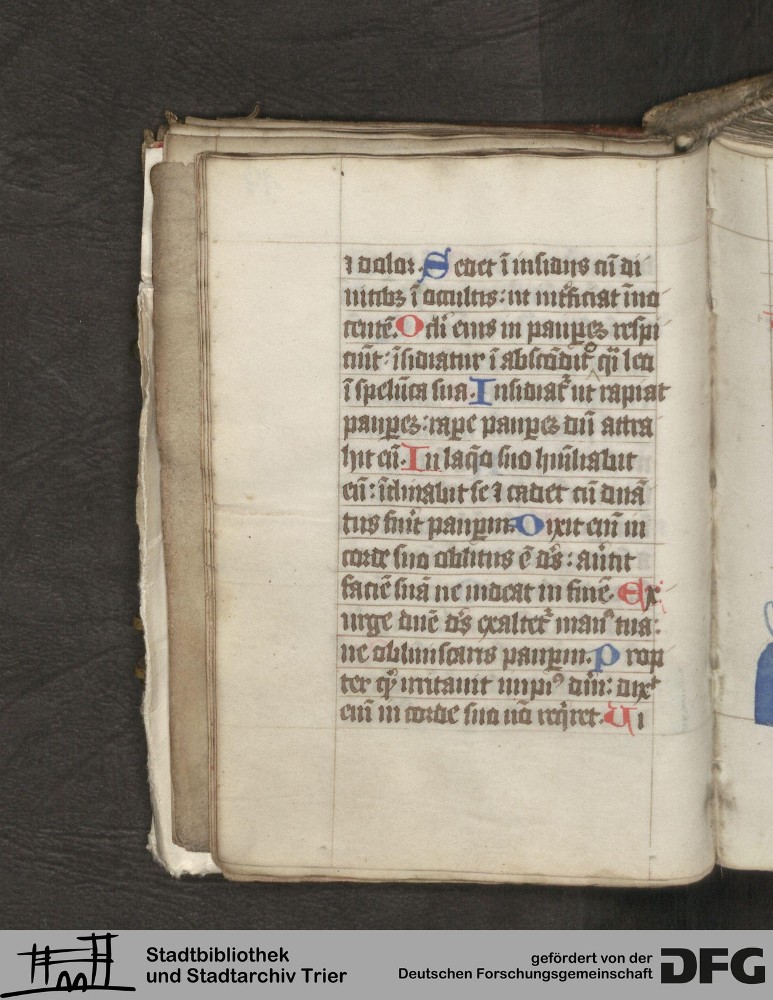 ⁊ dolor. Sedet ī insidijs cū di
uitibꝫ ī occultis: ut int̄ficiat īno
centē. Oculi eius in pauꝑes respi
ciūt: īsidiatur ī abscōdito qͥ leo
ī spelūca sua. Insidiat᷑ ut rapiat
pauꝑes: raꝑe pauꝑes dū attra
hit eū. In laqͦ suo humiliabit
eū: īclinabit se ⁊ cadet cū dnā
tus fuit̓ pauꝑum. Dixit enī in
corde suo oblitus ē dˢ: au̓tit
faciē suā ne uideat in finē. Ex
urge dnē dˢ exaltet᷑ manꝰ tua:
ne obliuiscaris pauꝑum. Prop
ter qͥ irritauit impiꝰ dm̄: dixͭ
enī in corde suo nō reqͥret. Ui
Stadtbibliothek
und Stadtarchiv Trier
gefördert von der
Deutschen Forschungsgemeinschaft
DFG